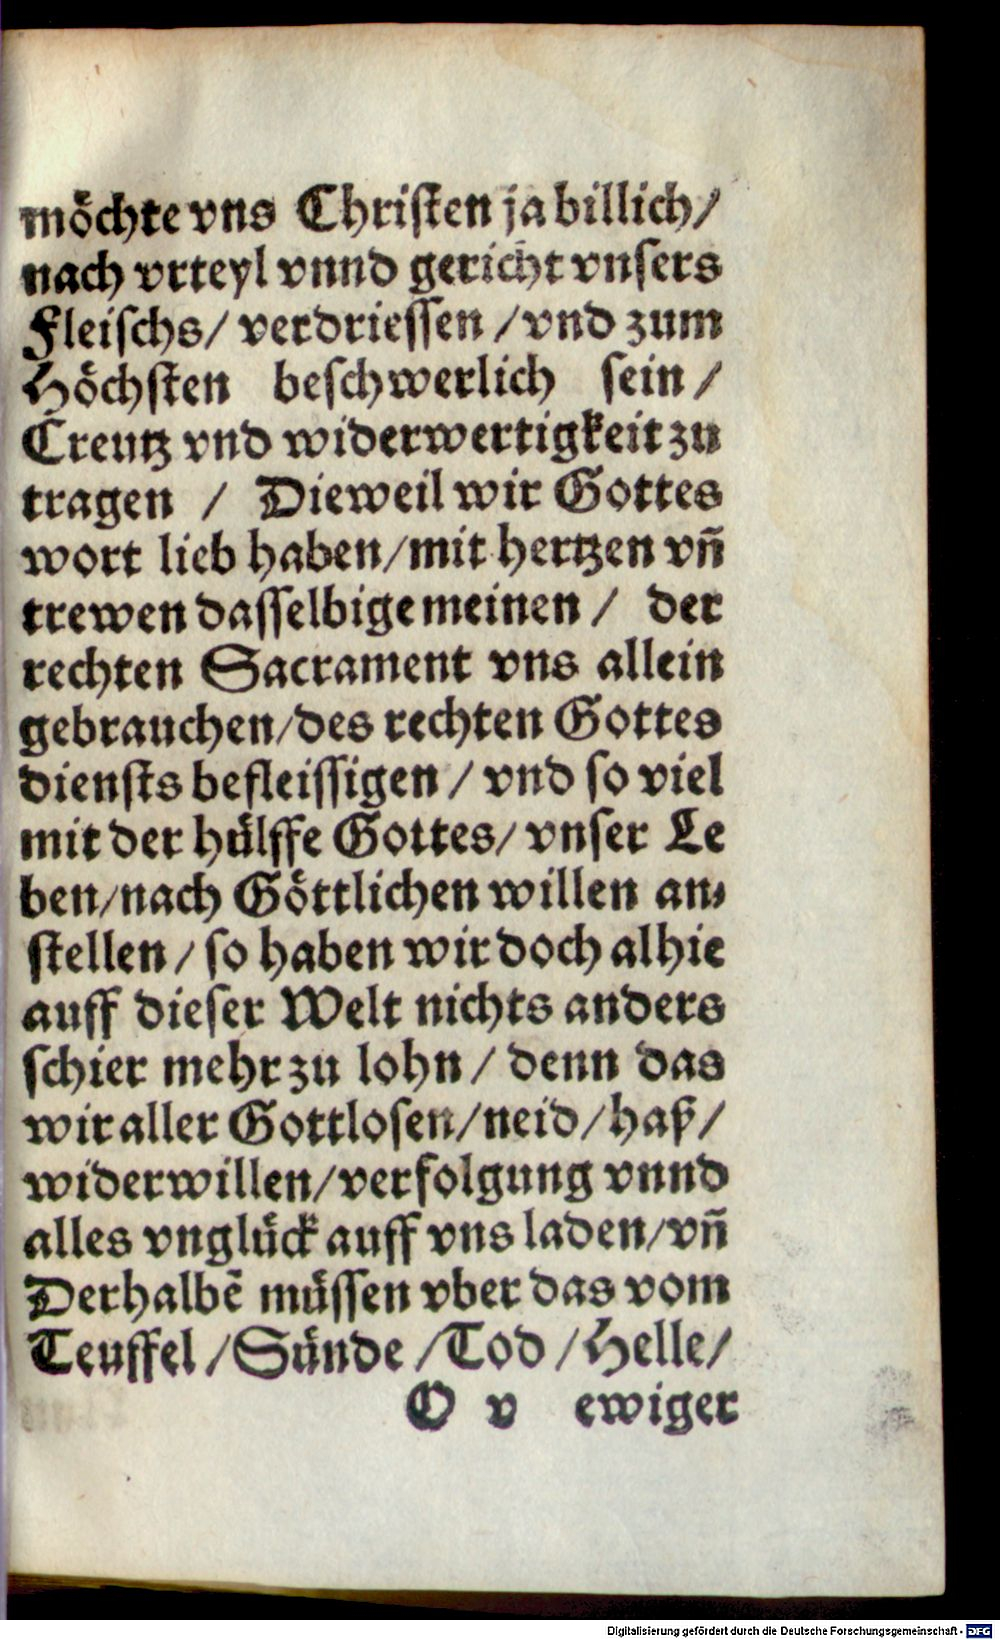 möchte vns Christen ja billich/
nach vrteyl vnnd gericht vnsers
Fleischs/ verdriessen /vnd zum
Höchsten beschwerlich sein /
Creutz vnd widerwertigkeit zu
tragen / Dieweil wir Gottes
wort lieb haben/mit hertzen vñ
trewen dasselbige meinen / der
rechten Sacrament vns allein
gebrauchen/des rechten Gottes
diensts befleissigen / vnd so viel
mit der hülffe Gottes/ vnser Le
ben/nach Göttlichen willen an⸗
stellen / so haben wir doch alhie
auff dieser Welt nichts anders
schier mehr zu lohn / denn das
wir aller Gottlosen/neid/haß/
widerwillen/verfolgung vnnd
alles vnglück auff vns laden/vñ
Derhalbē müssen vber das vom
Teuffel /Sünde /Tod /Helle/
O v ewiger
Digitalisierung gefördert durch die Deutsche Forschungsgemeinschaft - DFG